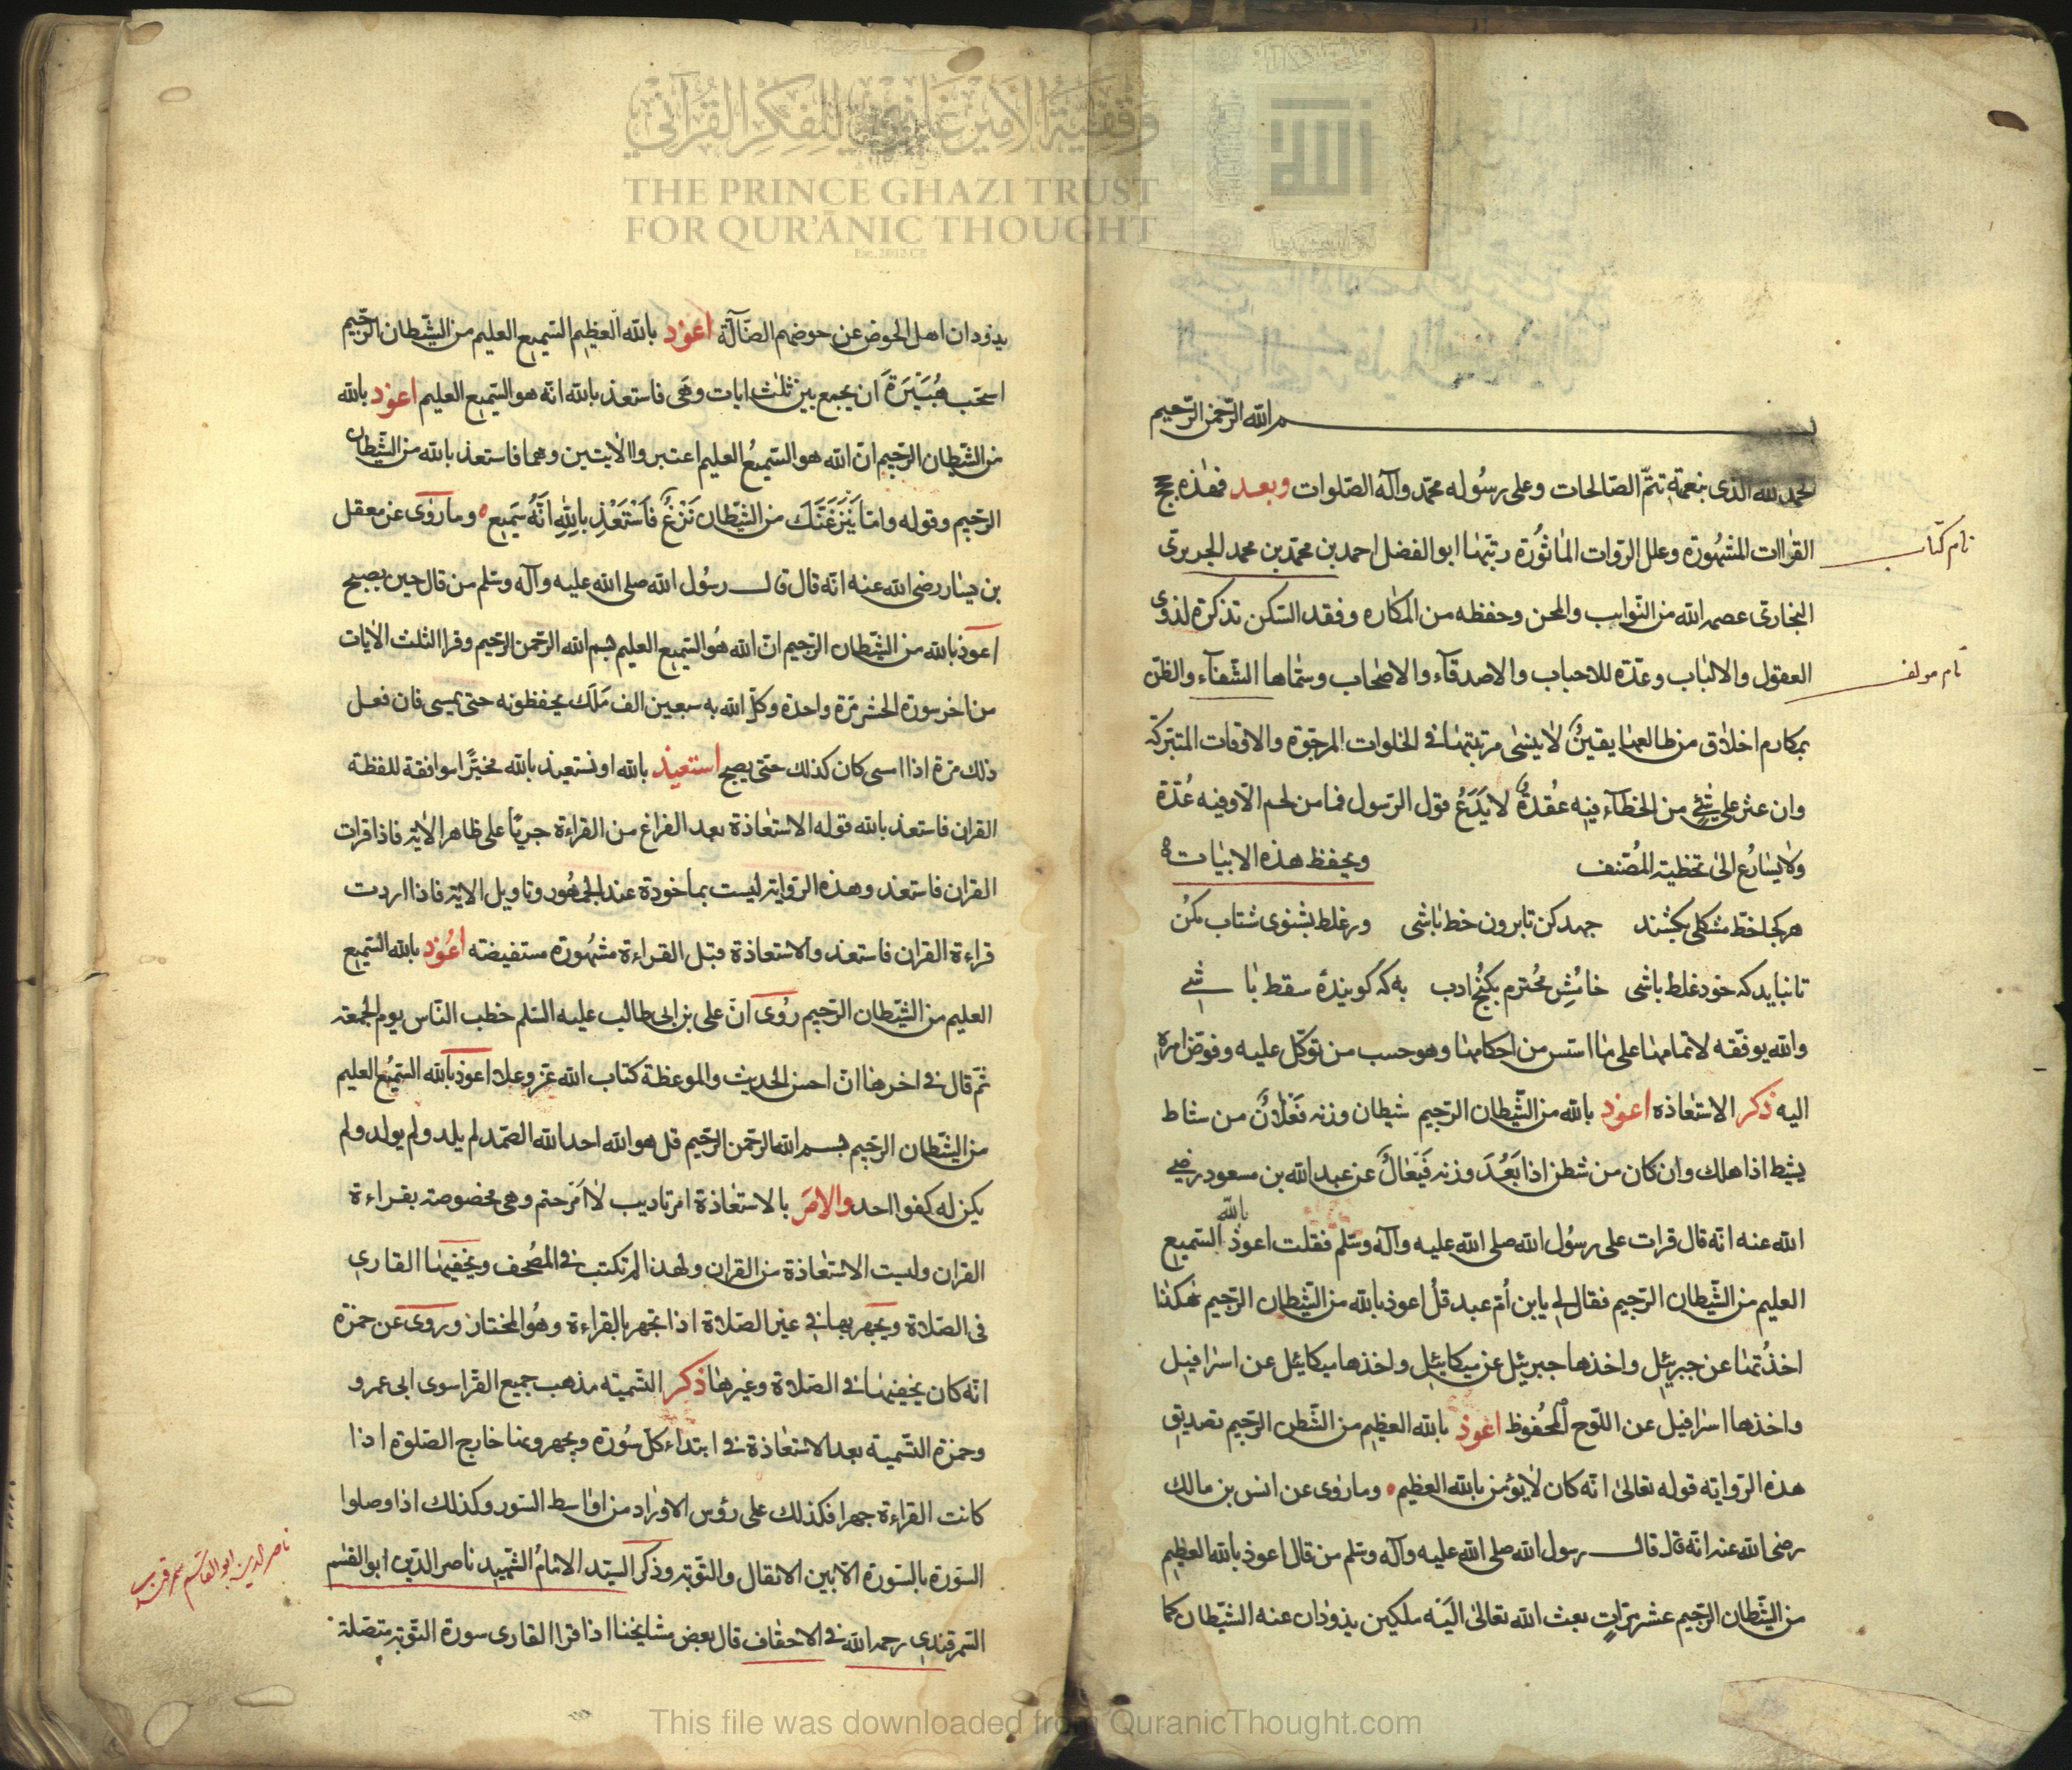 بسم الله الرحمن الرحيم
الحمد لله الذى بنعمته تتمّ الصّالحات وعلى رسُوله محمّد وآله الصّلوات وبعد فهٰذه حجج
القراات المشهُورة وعلل الرّوات الماثوُرة رتبّهٰا ابو الفضل احمد بن محمّد بن محمد الحريرى
البخارى عصمه الله من النّوايب والمحن وحفظه من المكاره وفقد السّكن تذكرة لذوى
العقول والالبٰاب وعدّة للاحباب والاصدقآء والاصْحاب وسمّاها الشّفآء والظنّ
بمكارم اخلاق من طالعها يقينٌ لا ينسٰى مرتبّهٰا فى الخلوات المرجّوة والاوقات المتبّركة
وان عثر على شئ من الخطآء فيه عُقدةٌ لا يَدَعُ قول الرّسول فما من لحم الّا وفيه غُدّة
ولا يسٰارُع الىٰ تخطيّة المُصّنف
ويحفظ هذه الابيٰات
هر كجا خطّ مشكلى بكشند جهد كن تا برون خط باشى ور غلط بشنوى شتاب مكُن
تا نبايد كه خود غلط باشى خامُشِ مُحترم بكنُج ادب به كه كويندۀ سقط باشے
والله يوفّقه لاتمامهٰا على مٰا اسّس من احكامهٰا وهو حسب من توكّل عليه وفوّض امره
اليه ذكر الاستعٰاذه اعوذ بالله من الشّيطان الرّجيم شيطان وزنه فَعْلانٌ من شاط
يشيط اذا هلك وان كان من شطن اذا بَعُدَ وزنه فَيْعَالٌ عن عبد الله بن مسعود رضى
الله عنه انّه قال قرات على رسُول الله صلى الله عليه وآله وسّلم فقلت اعوذ بالله السّميع
العليم من الشّيطان الرّجيم فقال لى يا بن اُمّ عبد قلْ اعوذ بالله من الشّيطان الرّجيم هٰكذا
اخذُتهٰا عن جبرئِل واخذها جبرئل عن ميكائِل واخذها ميكائل عن اسرٰافيل
واخذها اسرٰافيل عن اللّوح المحُفوظ اعوذ بالله العظيم من الشّطن الرّجيم تصديق
هذه الرّواية قوله تعالىٰ انّه كان لا يؤمن بالله العظيم وما روٰى عن انس بن مالك
رضى الله عنه انّه قال قال رسول الله صلى الله عليه وآله وسّلم من قال اعوذ بالله العظيم
من الشّيطان الرّجيم عشر مرّاتٍ بعث الله تعالىٰ اليَه ملكين يذودٰان عنه الشّيطان كما
نام كتاب
نام مولف
يذودان اهل الحوض عن حوضهم الضّآلّة اعوذ بالله العظيم السّميع العليم من الشّيطان الرّجيم
استحب هُبَيْرَة ان يجمع بين ثلٰث ايات وهَى فاستعذ بالله انّه هو السّميع العليم اعوذ بالله
من الشّيطان الرّجيم انّ الله هو السّميعُ العليم اعتبروا الايٰتين وهما فاستعذ بالله من الشّيطان
الرّجيم وقوله وامّا يَنْزَغَنّكَ من الشّيطان نَزْغٌ فَاَسْتَعْذِ باِللهِ انَّهُ سَميع وما روٰى عن معقل
بن يسار رضى الله عنه انّه قال قال رسُول الله صلى الله عليه وآله وسّلم من قال حين يصبح
اعوذ بالله من الشّيطان الرّجيم انّ الله هُو السّميع العليم بسم الله الرّحمن الرّحيم وقرا الثلٰث الايات
من اخر سورة الحشر مّرة واحدة وكّل الله به سبعين الف مَلَك يحفظونه حتى يمسى فان فعل
ذلك مرّة اذا امسى كان كذلك حتى يصبح استعيذ بالله او نستعيذ بالله مخيّرًا موافقة للفظة
القران فاستعذ بالله قوله الاستعٰاذة بعد الفراغ من القراءة جريًا على ظاهر الاية فاذا قرات
القران فاستعذ وهذه الرّواية ليست بماخوذة عند الجمهُور وتاويل الاية فاذا اردت
قراءة القران فاستعذ والاستعاذة قبل القراءة مشهُورة مستفيضه اعُوذ بالله السّميع
العليم من الشّيطان الرّجيم روُى انّ على بن ابى طالب عليه السّلم خطب النّاس يوم الجمعة
ثمّ قال فى اخرهٰا انّ احسن الحديث والموعظة كتاب الله عّز وعلا اعوذ بالله السّميُع العليم
من الشّيطان الرّجيم بسم الله الرّحمن الرّحيم قل هو الله احد الله الصّمد لم يلد ولم يولد ولم
يكن له كفوا احد والامرَ بالاستعٰاذة امر تاديب لا اَمر حتم وهى مخصوصة بقراءة
القران وليست الاستعٰاذة من القران ولهذا لم تكتب فى المصُحف ويخفيهٰا القارى
فى الصّلاة ويجهر بها فى غير الصّلاة اذا تجهر بالقراءة وهُو المختار وروى عن حمزة
انّه كان يخفيهٰا فى الصّلاة وغيرهٰا ذكر التّسمية مذهب جميع القّرا سوى ابى عمرو
وحمزة التّسمية بعد الاستعٰاذة فى ابتداء كلّ سُورة ويجهرونها خارج الصّلوة اذا
كانت القراءة جهرا فكذلك على رؤس الاورٰاد من اوٰاسط السّور وكذلك اذا وصلوا
السّورة بالسّورة الّا بين الانفال والتّوبة وذكر السّيد الامٰامُ الشّهيد ناصر الدّين ابو القٰسم
السّمرقندى رحمه الله فى الاحقاف قال بعض مشايخنا اذا قرا القارى سورة التّوبة متصّلة
ناصر الدين ابو القاسم سمرقندى
وقفية الأمير غازي للفكر القرآني
THE PRINCE GHAZI TRUST
FOR QUR'ĀNIC THOUGHT
Est. 2012 CE
This file was downloaded from QuranicThought.com